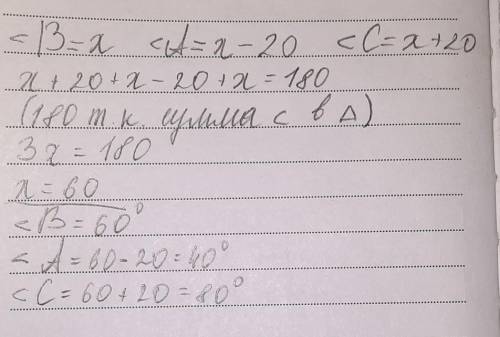 <B=x <A=x-20 <C=x+20
x+20+x-20+x=180
(180 т.к. сумма < в Δ)
3x=180
x=60
<B=60°
<A=60-20=40°
<C=60+20=80°